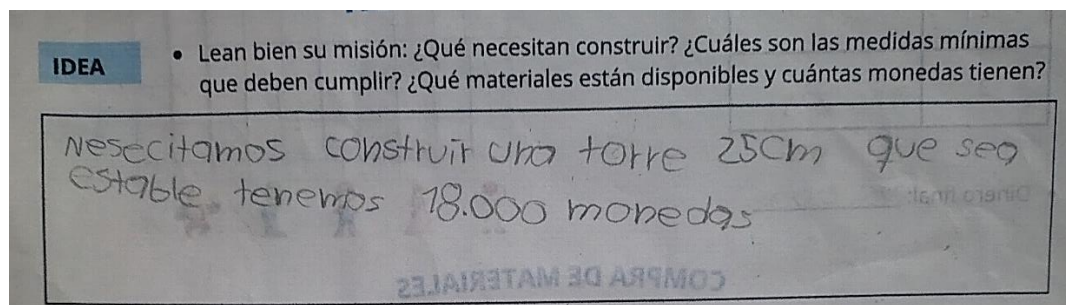 IDEA
• Lean bien su misión: ¿Qué necesitan construir? ¿Cuáles son las medidas mínimas
que deben cumplir? ¿Qué materiales están disponibles y cuántas monedas tienen?
Nesecitamos construir una torre 25cm que sea
estable tenemos 18.000 monedas
Dinero inicial:
COMPRA DE MATERIALES